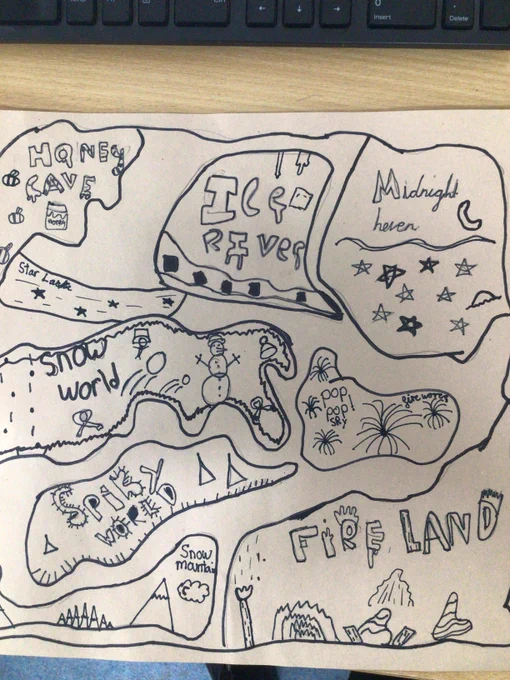 0
Insert
.
Delete
HONEY
CAVE
HONEY
ICE
RIVER
Midnight
heven
Star Lake
Snow
world
pop!
pop!
SKY
fire works
SPIKEY
WORLD
Snow
mountain
FiRE LAND